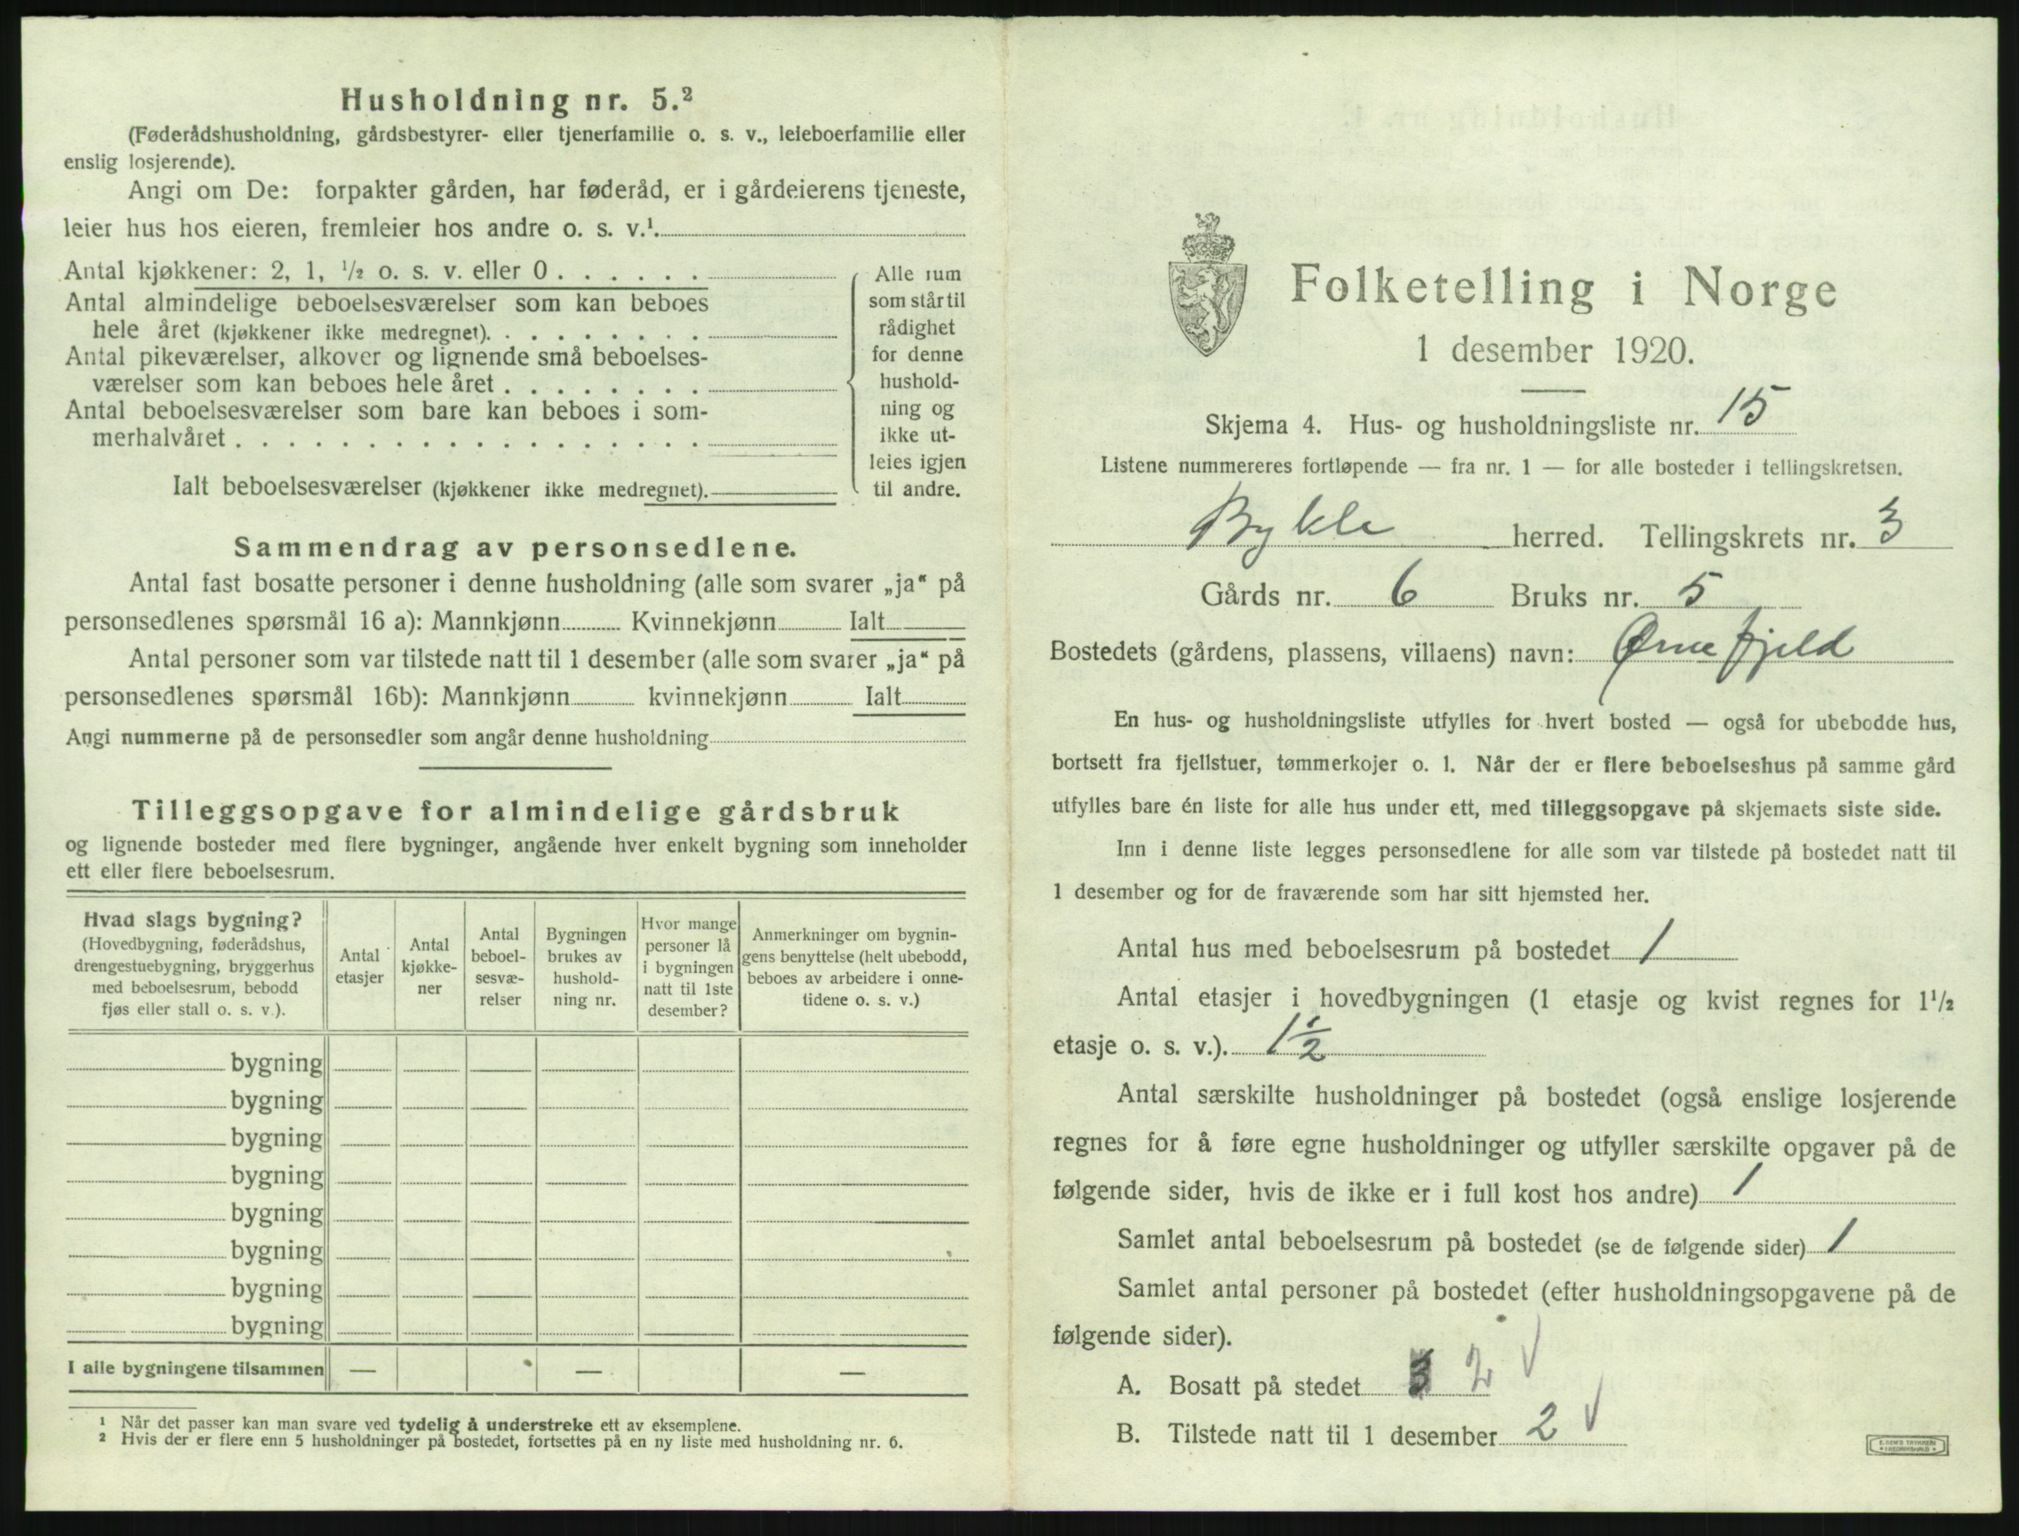 Husholdning nr. 5.²
(Føderådshusholdning, gårdsbestyrer- eller tjenerfamilie o. s. v., leieboerfamilie eller
enslig losjerende).
Angi om De: forpakter gården, har føderåd, er i gårdeierens tjeneste,
leier hus hos eieren, fremleier hos andre o. s. v.¹
Antal kjøkkener: 2, 1, ¹/₂ o. s. v. eller 0 . . . . . .
Antal almindelige beboelsesværelser som kan beboes
hele året (kjøkkener ikke medregnet). . . . . . . . .
Antal pikeværelser, alkover og lignende små beboelses-
værelser som kan beboes hele året . . . . . . . .
Antal beboelsesværelser som bare kan beboes i som-
merhalvåret . . . . . . . . . . . . . . . . . .
Ialt beboelsesværelser (kjøkkener ikke medregnet).
Alle rum
som står til
rådighet
for denne
hushold-
ning og
ikke ut-
leies igjen
til andre.
Sammendrag av personsedlene.
Antal fast bosatte personer i denne husholdning (alle som svarer „ja“ på
personsedlenes spørsmål 16 a): Mannkjønn Kvinnekjønn Ialt
Antal personer som var tilstede natt til 1 desember (alle som svarer „ja“ på
personsedlenes spørsmål 16b): Mannkjønn kvinnekjønn Ialt
Angi nummerne på de personsedler som angår denne husholdning
Tilleggsopgave for almindelige gårdsbruk
og lignende bosteder med flere bygninger, angående hver enkelt bygning som inneholder
ett eller flere beboelsesrum.
Hvad slags bygning?
(Hovedbygning, føderådshus,
drengestuebygning, bryggerhus
med beboelsesrum, bebodd
fjøs eller stall o. s. v.).
Antal
etasjer
Antal
kjøkke-
ner
Antal
beboel-
sesvæ-
relser
Bygningen
brukes av
hushold-
ning nr.
Hvor mange
personer lå
i bygningen
natt til 1ste
desember?
Anmerkninger om bygnin-
gens benyttelse (helt ubebodd,
beboes av arbeidere i onne-
tidene o. s. v.)
bygning
bygning
bygning
bygning
bygning
bygning
bygning
bygning
I alle bygningene tilsammen — — —
¹ Når det passer kan man svare ved tydelig å understreke ett av eksemplene.
² Hvis der er flere enn 5 husholdninger på bostedet, fortsettes på en ny liste med husholdning nr. 6.
Folketelling i Norge
1 desember 1920.
Skjema 4. Hus- og husholdningsliste nr. 15
Listene nummereres fortløpende — fra nr. 1 — for alle bosteder i tellingskretsen.
Bykle herred. Tellingskrets nr. 3
Gårds nr. 6 Bruks nr. 5
Bostedets (gårdens, plassens, villaens) navn: Ørnefjeld
En hus- og husholdningsliste utfylles for hvert bosted — også for ubebodde hus,
bortsett fra fjellstuer, tømmerkojer o. l. Når der er flere beboelseshus på samme gård
utfylles bare én liste for alle hus under ett, med tilleggsopgave på skjemaets siste side.
Inn i denne liste legges personsedlene for alle som var tilstede på bostedet natt til
1 desember og for de fraværende som har sitt hjemsted her.
Antal hus med beboelsesrum på bostedet 1
Antal etasjer i hovedbygningen (1 etasje og kvist regnes for 1¹/₂
etasje o. s. v.). 1½
Antal særskilte husholdninger på bostedet (også enslige losjerende
regnes for å føre egne husholdninger og utfyller særskilte opgaver på de
følgende sider, hvis de ikke er i full kost hos andre) 1
Samlet antal beboelsesrum på bostedet (se de følgende sider) 1
Samlet antal personer på bostedet (efter husholdningsopgavene på de
følgende sider).
A. Bosatt på stedet 3 2 √
B. Tilstede natt til 1 desember 2 √